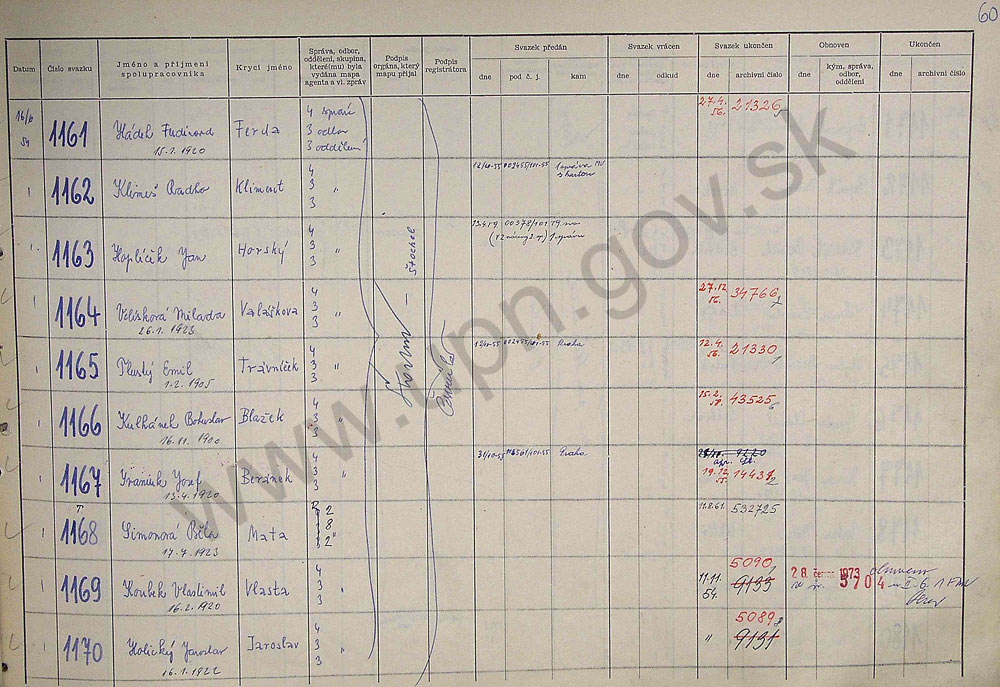 60
Datum
Číslo svazku
Jméno a příjmení spolupracovníka
Krycí jméno
Správa, odbor, oddělení, skupina, které(mu) byla vydána mapa agenta a vl. zpráv
Podpis orgána, který mapu přijal
Podpis registrátora
Svazek předán
dne
pod č. j.
kam
Svazek vrácen
dne
odkud
Svazek ukončen
dne
archivní číslo
Obnoven
dne
kým, správa, odbor, oddělení
Ukončen
dne
archivní číslo
16/6 54 1161 Ferda 4 správa 27.4. 21326
15.1.1920 3 odbor 56.
3 oddělení
1162 Klimeš Radko Kliment 4 12/10-55 002455/101-55 1 správa MV
3 "
3
1163 Haplíček Jan Horský 4
3 "
3
Štochel
1164 Milada Valaškova 4 27.12. 34766
26.1.1923 3 " 56.
3
1165 Plustý Emil Trávníček 4 12/10-55 002455/101-55 Praha 12.4. 21330
1.2.1905 3 " 56.
3
1166 Kulhánek Bohuslav Blažek 4 15.2. 43525
16.11.1900 3 58.
3
1167 Josef Beránek 4 31/10-55 Praha 9220
13.4.1920 3 " 19.12. 14439
3 55.
1168 Simonová Běla Mata 2 11.8.61. 532725
17.4.1923 8
2"
1169 Koubek Vlastimil Vlasta 4 5090
16.2.1920 3 11.11. 54. 9199 28. 1973 5704
3
1170 Holický Jaroslav Jaroslav 4 5089
16.1.1922 3 " " 9191
3
www.upn.gov.sk